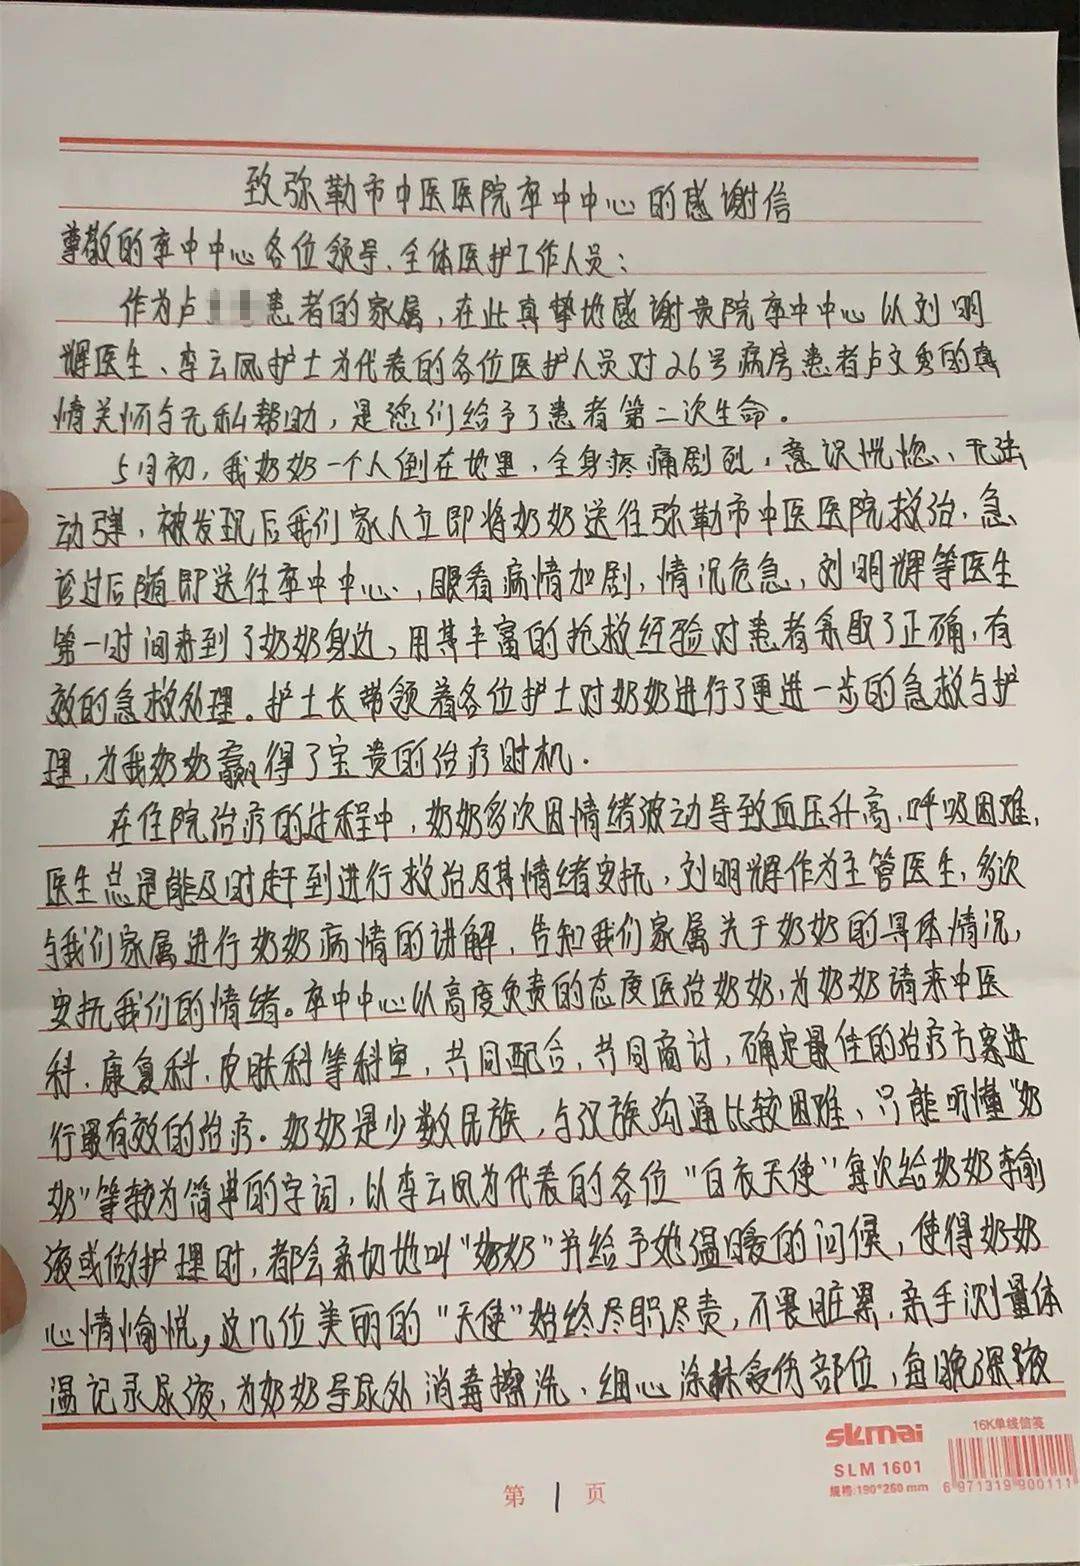 致弥勒市中医医院卒中中心的感谢信
尊敬的卒中中心各位领导、全体医护工作人员：
作为卢患者的家属，在此真挚地感谢贵院卒中中心以刘明
辉医生、李云凤护士为代表的各位医护人员对26号病房患者卢文秀的真
情关怀与无私帮助，是您们给予了患者第二次生命。
5月初，我奶奶一个人倒在地里，全身疼痛剧烈，意识恍惚、无法
动弹，被发现后我们家人立即将奶奶送往弥勒市中医医院救治，急
诊过后随即送往卒中中心，眼看病情加剧，情况危急，刘明辉等医生
第一时间来到了奶奶身边，用其丰富的抢救经验对患者采取了正确，有
效的急救处理。护士长带领着各位护士对奶奶进行了更进一步的急救与护
理，为我奶奶赢得了宝贵的治疗时机.
在住院治疗的过程中，奶奶多次因情绪波动导致血压升高，呼吸困难，
医生总是能及时赶到进行救治及其情绪安抚，刘明辉作为主管医生，多次
与我们家属进行奶奶病情的讲解，告知我们家属关于奶奶的具体情况，
安抚我们的情绪。卒中中心以高度负责的态度医治奶奶，为奶奶请来中医
科、康复科、皮肤科等科室，共同配合，共同商讨，确定最佳的治疗方案进
行最有效的治疗。奶奶是少数民族，与汉族沟通比较困难，只能听懂“奶
奶”等较为简单的字词，以李云凤为代表的各位“白衣天使”每次给奶奶输
液或做护理时，都会亲切地叫“奶奶”并给予她温暖的问候，使得奶奶
心情愉悦，这几位美丽的“天使”始终尽职尽责，不畏脏累，亲手测量体
温记录尿液，为奶奶导尿处消毒擦洗，细心涂抹受伤部位，每晚深夜
skmai
16K单线信笺
SLM 1601
规格:190*260mm
6 971319 900111
第 1 页